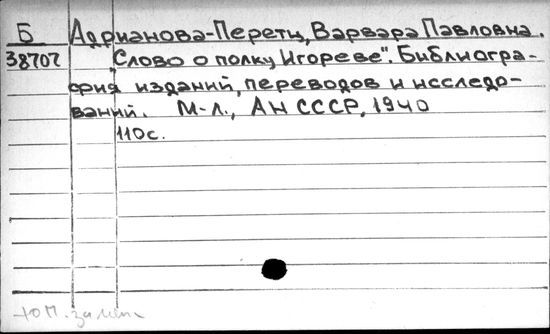 Б Адрианова-Перетц, Варвара Павловна.
38707 "Слово о полку Игореве". Библиогра-
фия изданий, переводов и исследо-
ваний. М-Л., АН СССР, 1940
110с.